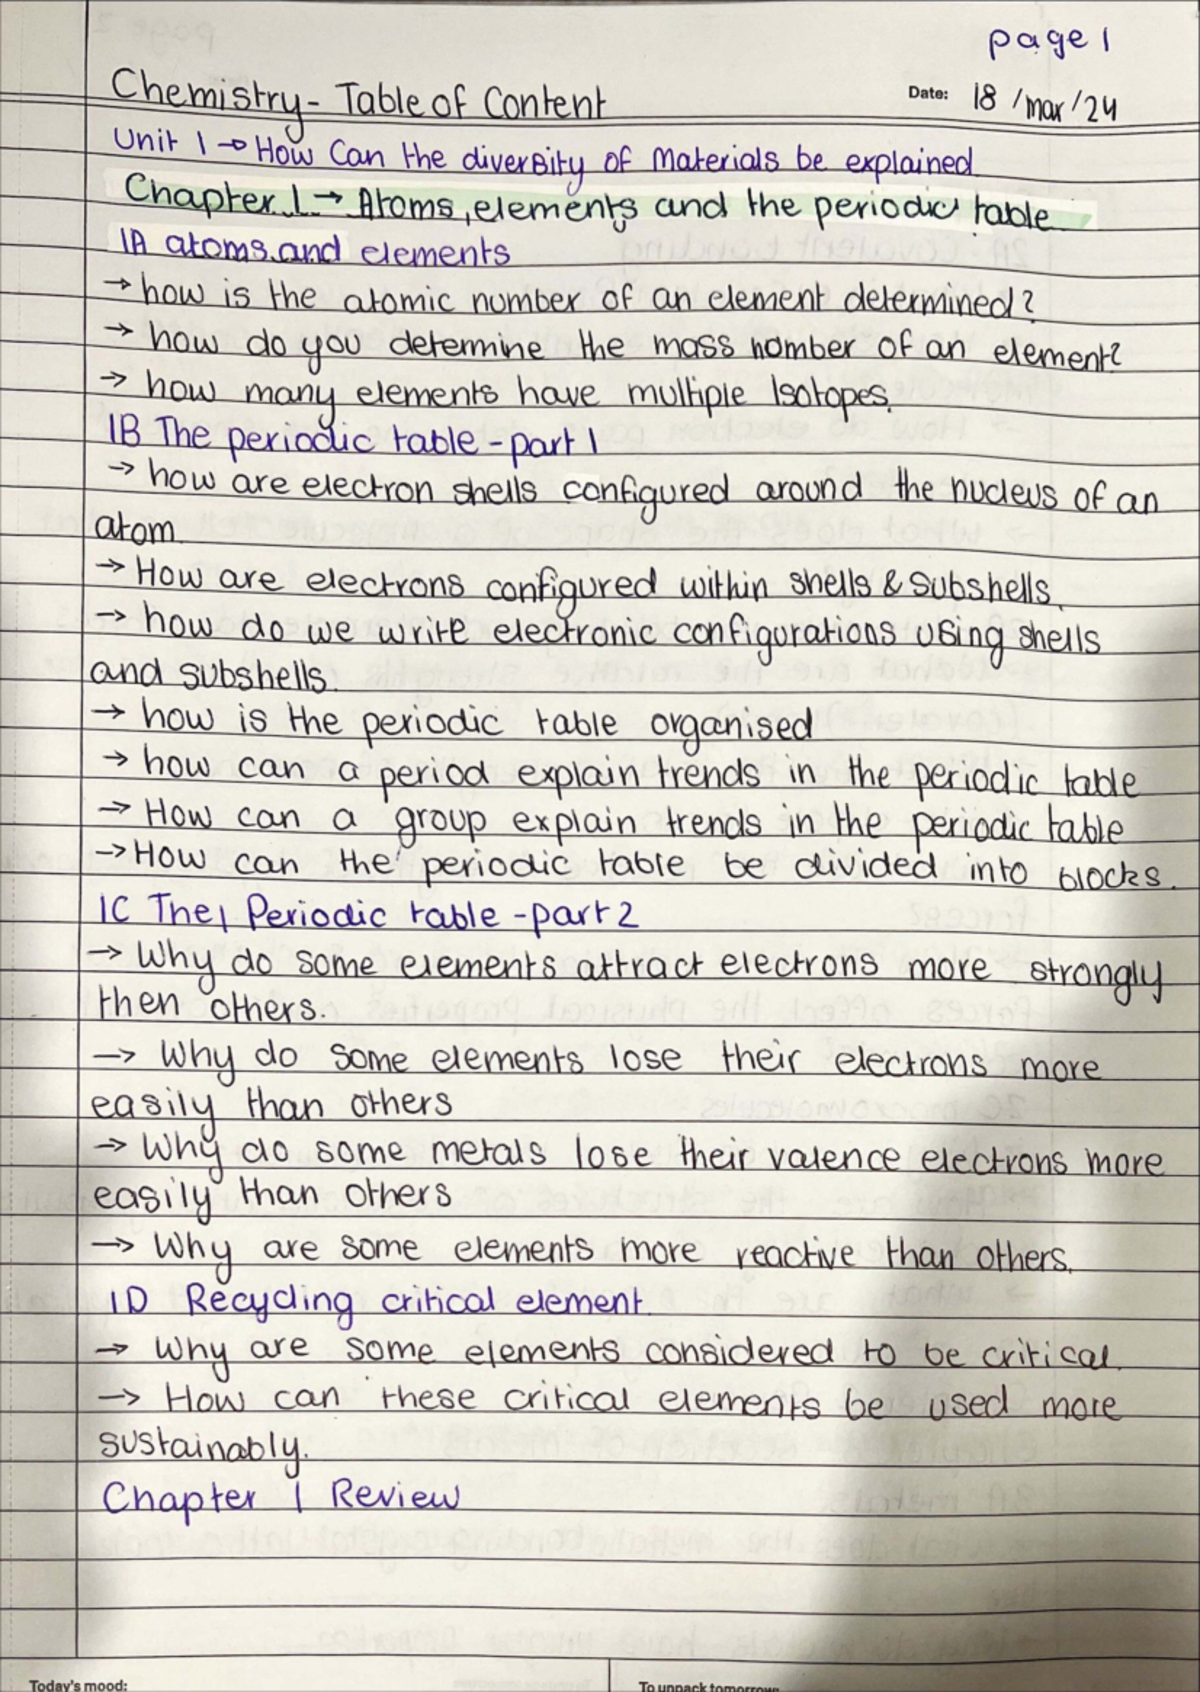 page 1
Chemistry - Table of Content
Date: 18 /mar/24
Unit 1 → How Can the diversity of Materials be explained
Chapter 1 → Atoms, elements and the periodic table
1A atoms and elements
→ how is the atomic number of an element determined?
→ how do you determine the mass number of an element?
→ how many elements have multiple Isotopes.
1B The periodic table - part 1
→ how are electron shells configured around the nucleus of an
atom.
→ How are electrons configured within shells & Subshells.
→ how do we write electronic configurations using shells
and subshells.
→ how is the periodic table organised
→ how can a period explain trends in the periodic table
→ How can a group explain trends in the periodic table
→ How can the periodic table be divided into blocks.
1C The, Periodic table - part 2
→ Why do some elements attract electrons more strongly
then others.
→ Why do some elements lose their electrons more
easily than others
→ Why do some metals lose their valence electrons more
easily than others
→ Why are some elements more reactive than others.
1D Recycling critical element.
→ Why are some elements considered to be critical.
→ How can these critical elements be used more
sustainably.
Chapter 1 Review
Today's mood:
To unpack tomorrow: